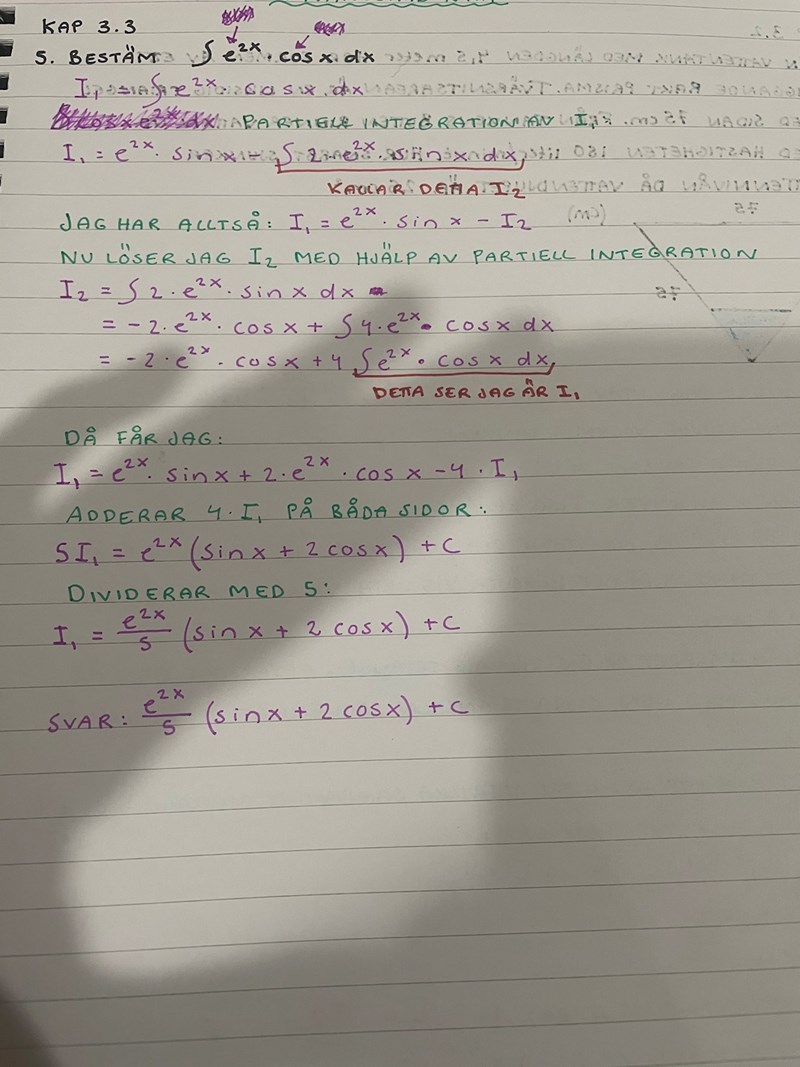 KAP 3.3
5. BESTÄM ∫ e^2x · cos x dx
I₁ = ∫ e^2x · cos x dx
PARTIELL INTEGRATION AV I₁:
I₁ = e^2x · sin x - ∫ 2 · e^2x · sin x dx
KALLAR DETTA I₂
JAG HAR ALLTSÅ: I₁ = e^2x · sin x - I₂
NU LÖSER JAG I₂ MED HJÄLP AV PARTIELL INTEGRATION
I₂ = ∫ 2 · e^2x · sin x dx
= -2 · e^2x · cos x + ∫ 4 · e^2x · cos x dx
= -2 · e^2x · cos x + 4 ∫ e^2x · cos x dx
DETTA SER JAG ÄR I₁
DÅ FÅR JAG:
I₁ = e^2x · sin x + 2 · e^2x · cos x - 4 · I₁
ADDERAR 4 · I₁ PÅ BÅDA SIDOR:
5I₁ = e^2x (sin x + 2 cos x) + C
DIVIDERAR MED 5:
I₁ = e^2x/5 (sin x + 2 cos x) + C
SVAR: e^2x/5 (sin x + 2 cos x) + C